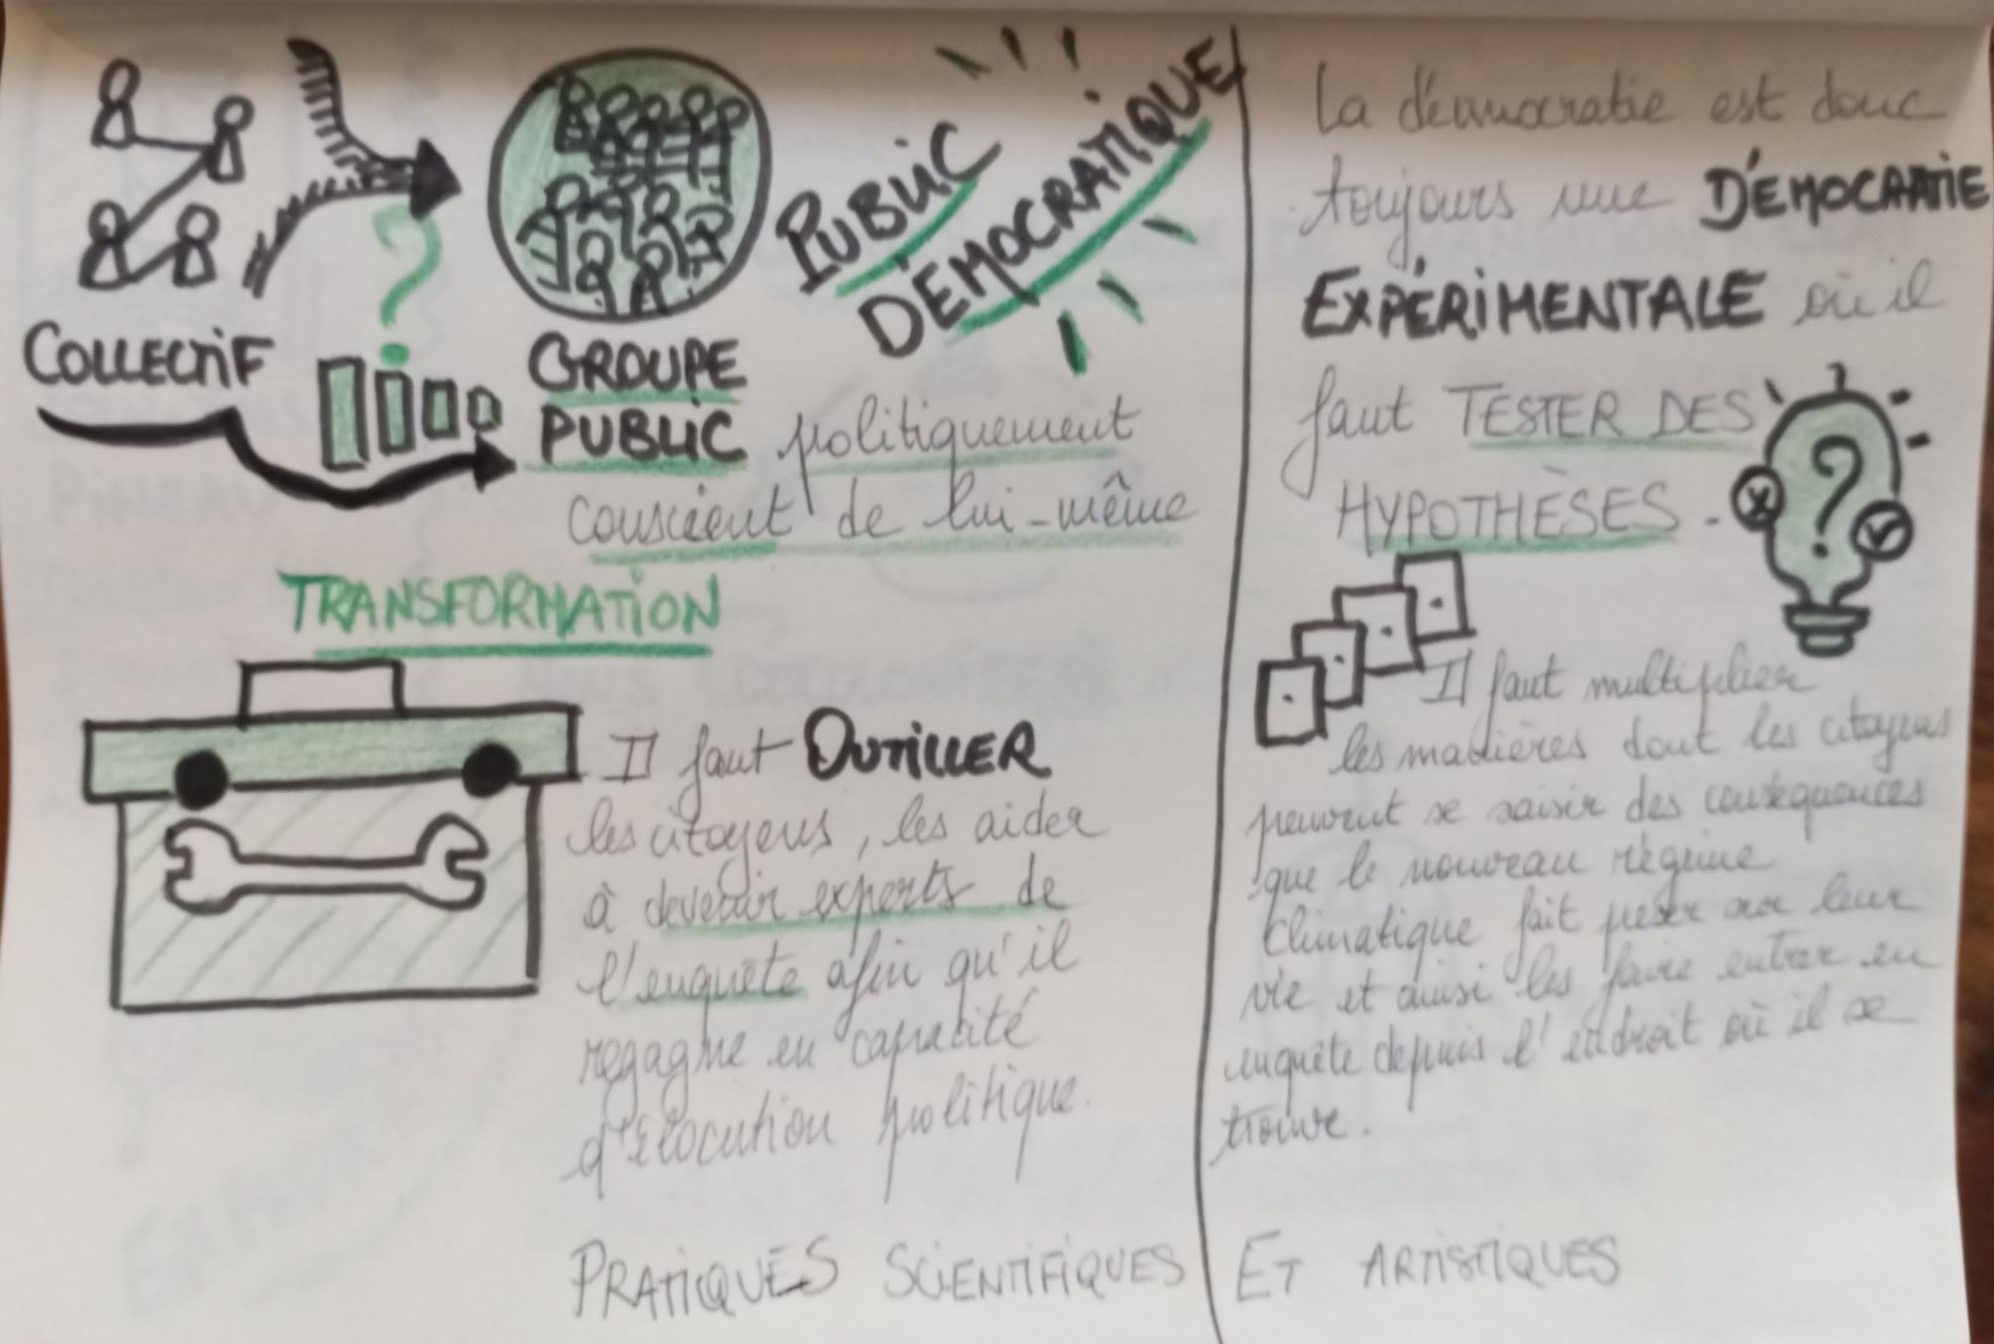 COLLECTIF
GROUPE
PUBLIC
PUBLIC
DÉMOCRATIQUE
politiquement
conscient de lui-même
TRANSFORMATION
Il faut OUTILLER
les citoyens, les aider
à devenir experts de
l'enquête afin qu'il
regagne en capacité
d'élocution politique.
La démocratie est donc
toujours une DÉMOCRATIE
EXPÉRIMENTALE où il
faut TESTER DES
HYPOTHÈSES.
?
Il faut multiplier
les manières dont les citoyens
peuvent se saisir des conséquences
que le nouveau régime
climatique fait peser sur leur
vie et ainsi les faire entrer en
enquête depuis l'endroit où il se
trouve.
PRATIQUES SCIENTIFIQUES ET ARTISTIQUES